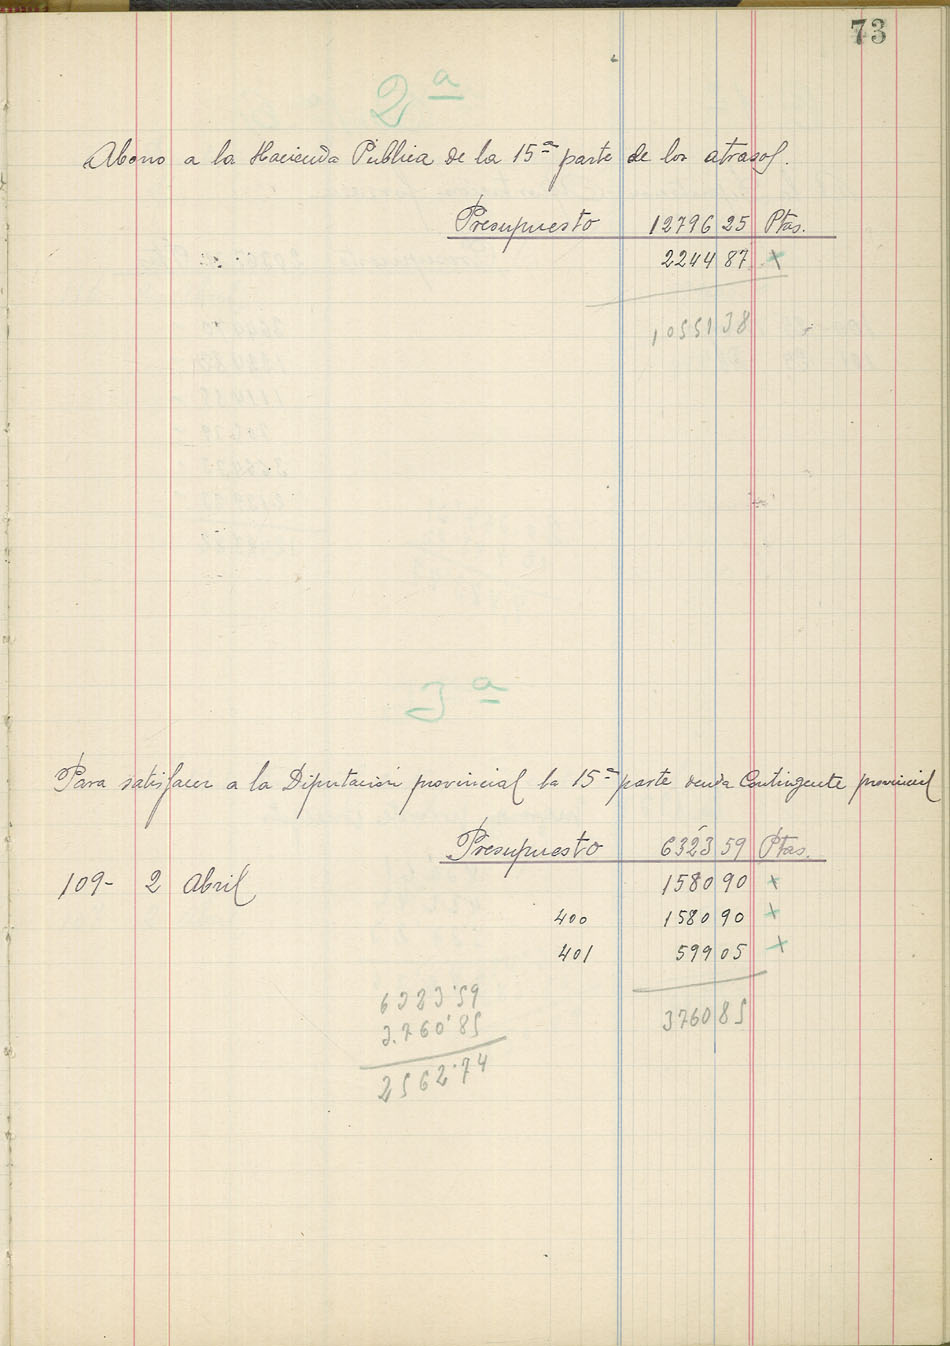 73
2ª
Abono a la Hacienda Pública de la 15ª parte de los atrasos.
Presupuesto 12796 25 Ptas.
2244 87 x
10551 38
3ª
Para satisfacer a la Diputación provincial la 15ª parte deuda Contingente provincial
Presupuesto 6323 59 Ptas.
109- 2 Abril 1580 90 x
400 1580 90 x
401 599 05 x
6323'59
3.760'85
3760 85
2562'74